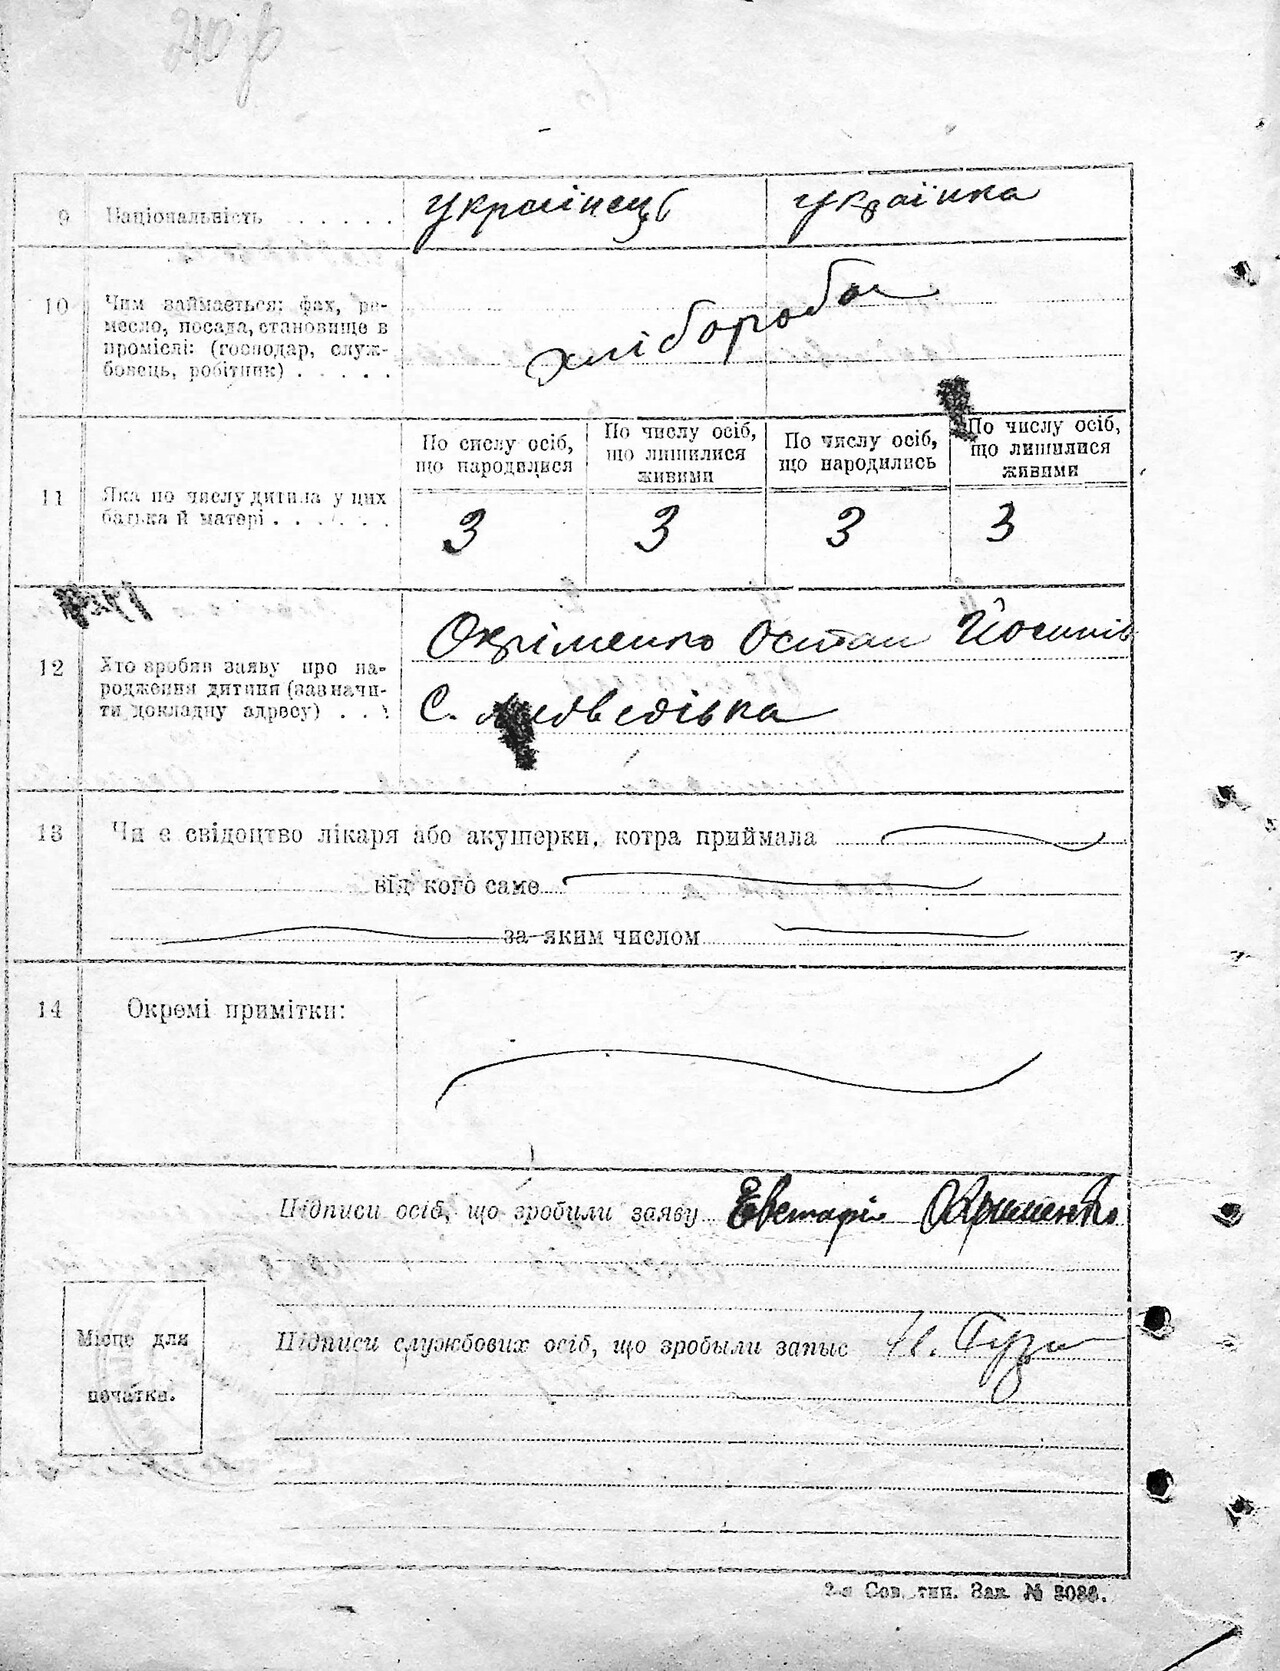 9 Національність . . . . . українець українка
10 Чим займається: фах, ре-
месло, посада, становище в
промислі: (господар, служ-
бовець, робітник) . . . . .
хлібороба
11 Яка по числу дитина у цих
батька й матері . . . . . .
По числу осіб, що народилися
По числу осіб, що лишилися живими
По числу осіб, що народились
По числу осіб, що лишилися живими
3 3 3 3
12 Хто зробив заяву про на-
родження дитини (зазначи-
ти докладну адресу) . . .
Окріменко Остап Йосипів
С. Медведівка
13 Чи є свідоцтво лікаря або акушерки, котра приймала
від кого саме
за яким числом
14 Окремі примітки:
Підписи осіб, що зробили заяву Евстафі Окрименко
Місце для
печатки.
Підписи службових осіб, що зробыли запыс
2-я Сов. тип. Зак. № 3086.